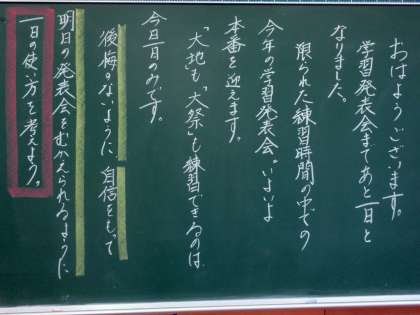 おはようございます。
学習発表会まであと一日と
なりました。
限られた練習時間の中での
今年の学習発表会。いよいよ
本番を迎えます。
「大地」も「大祭」も練習できるのは
今日一日のみです。
後悔のないように、自信をもって
明日の発表会をむかえられるように
一日の使い方を考えよう。